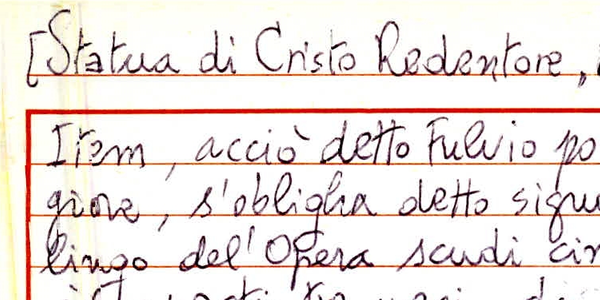 [Statua di Cristo Redentore,
Item, acciò detto Fulvio po
giore, s'obligha detto signo
lingo del'Opera scudi cin